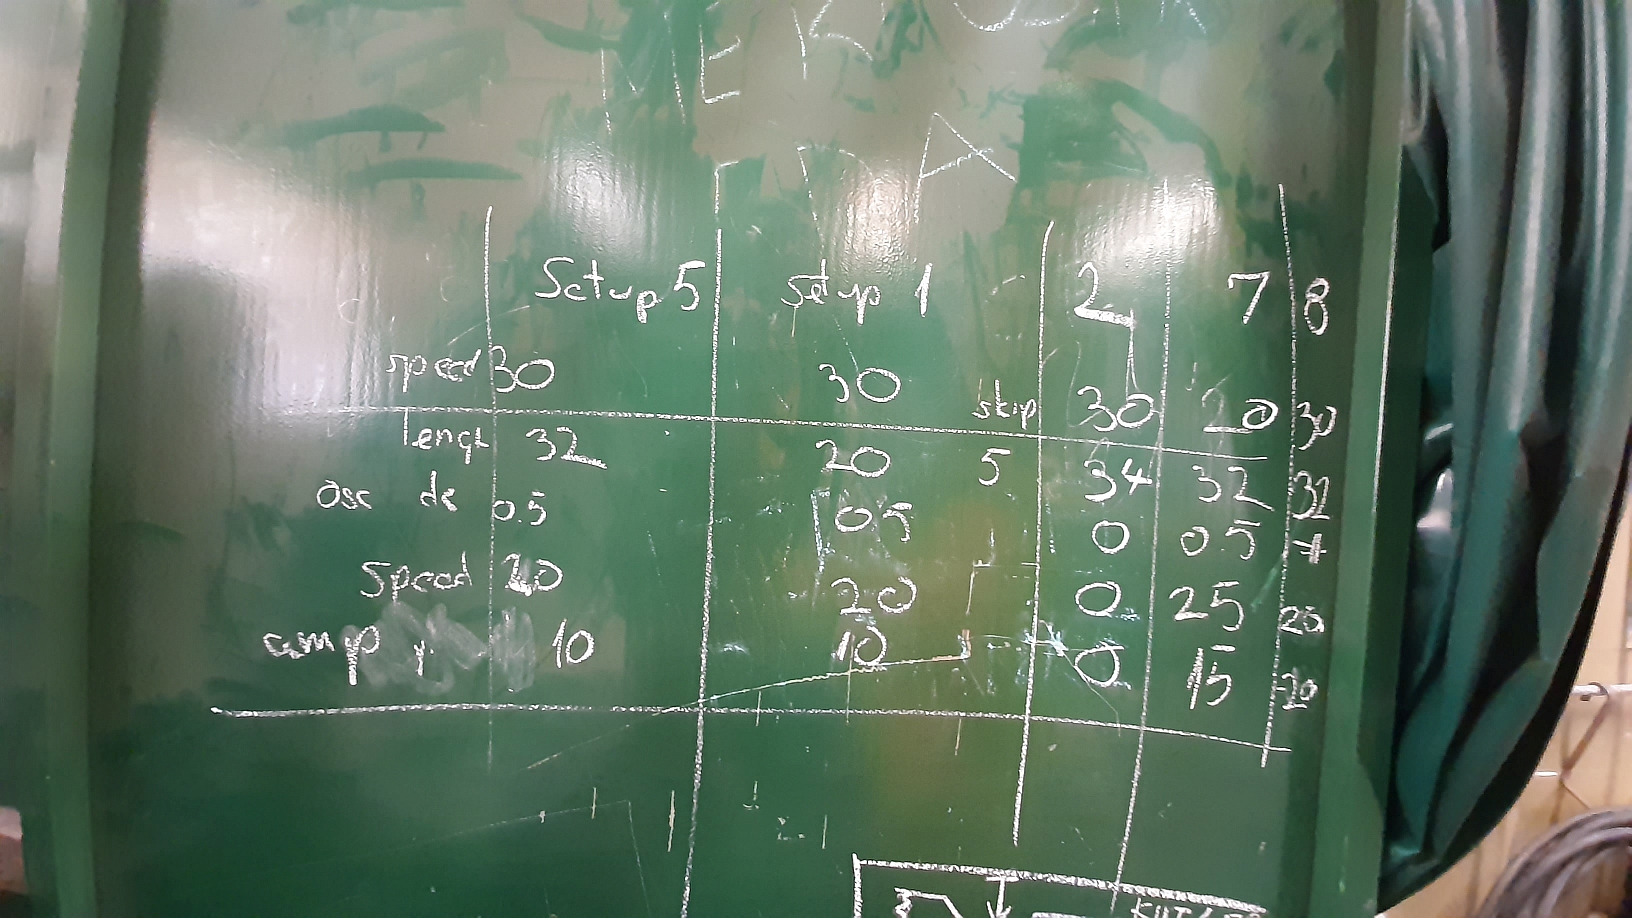 Setup 5 Setup 1 2 7 8
speed 30 30 skip 30 20 30
lengt 32 20 5 34 32 32
Osc de 0.5 0.5 0 0.5
Speed 20 20 0 25 20
amp 10 10 0 15 20